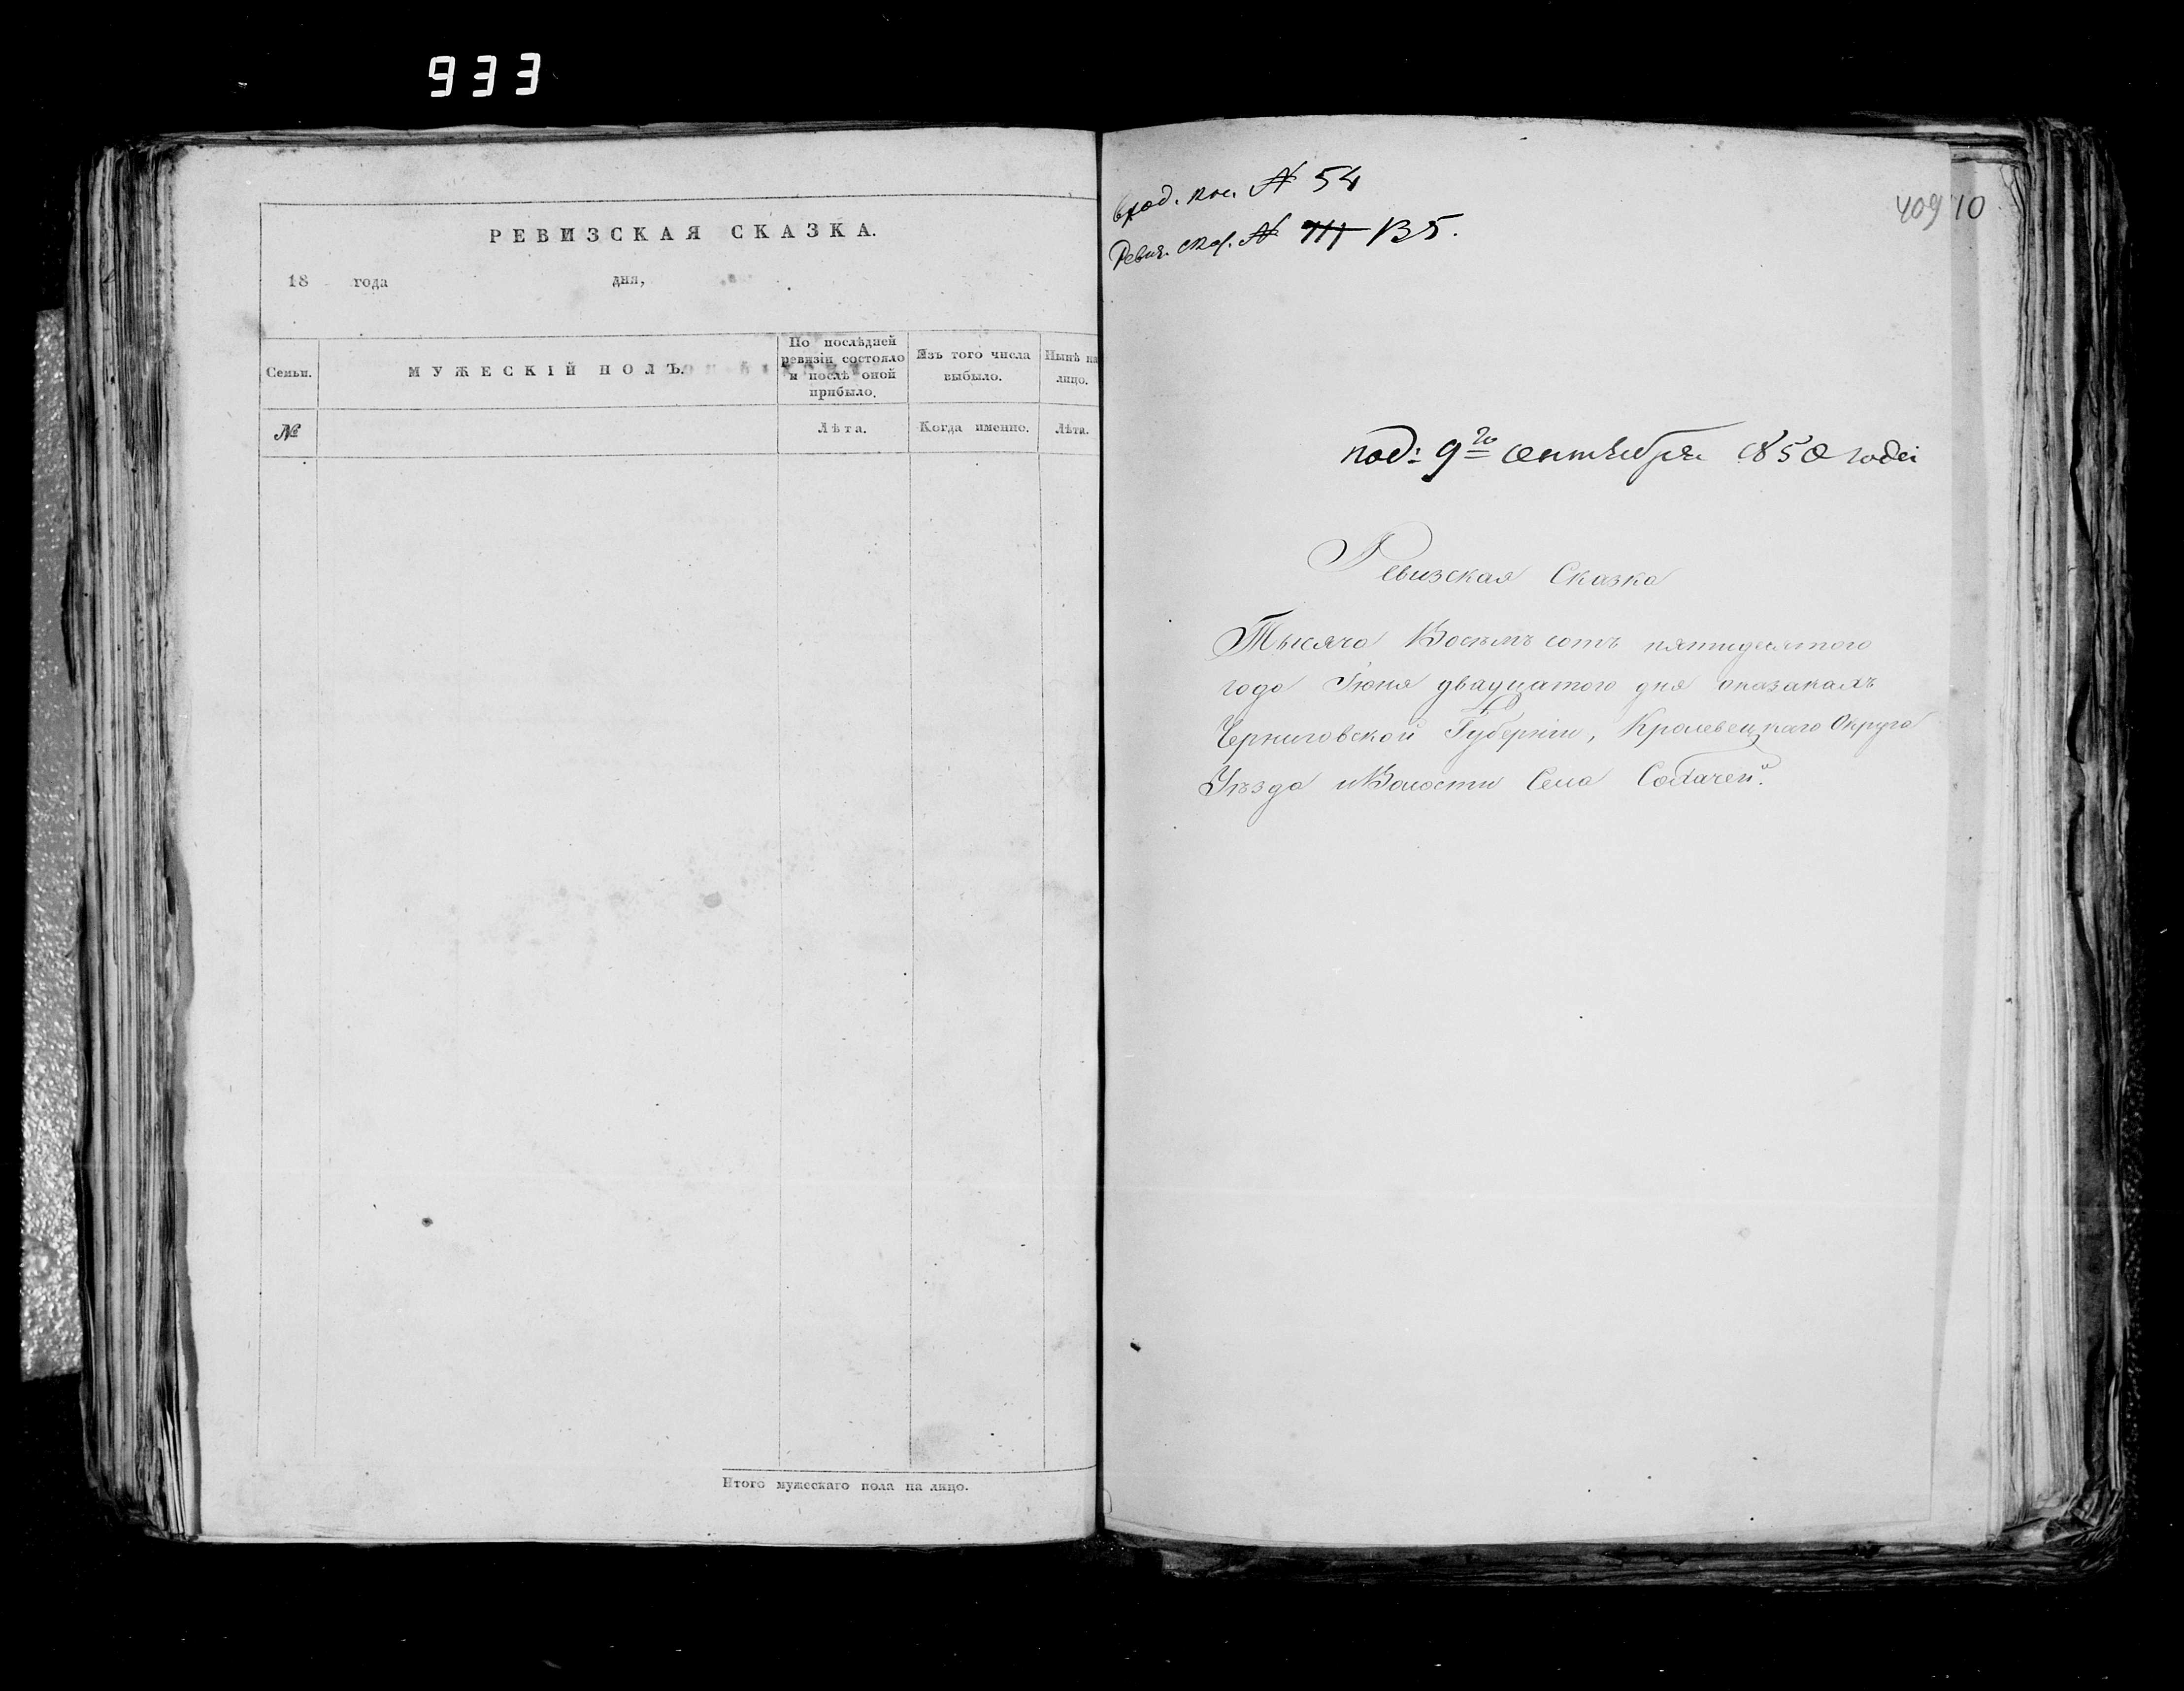 933
РЕВИЗСКАЯ СКАЗКА.
18 года дня,
Семьи.
МУЖЕСКІЙ ПОЛЪ.
По послѣдней ревизіи состояло и послѣ оной прибыло.
Изъ того числа выбыло.
Нынѣ на лицо.
№
Лѣта.
Когда именно.
Лѣта.
Итого мужескаго пола на лицо.
вход. кн. № 54
Ревиз. сказ. № 135.
409 10
под: 9го сентября 1850 года
Ревизская Сказка
Тысяча Восемъ сотъ пятидесятого
года Іюня двадцатого дня
Черниговской Губерніи, Кролевецкаго Округа
Уѣзда и Волости Села